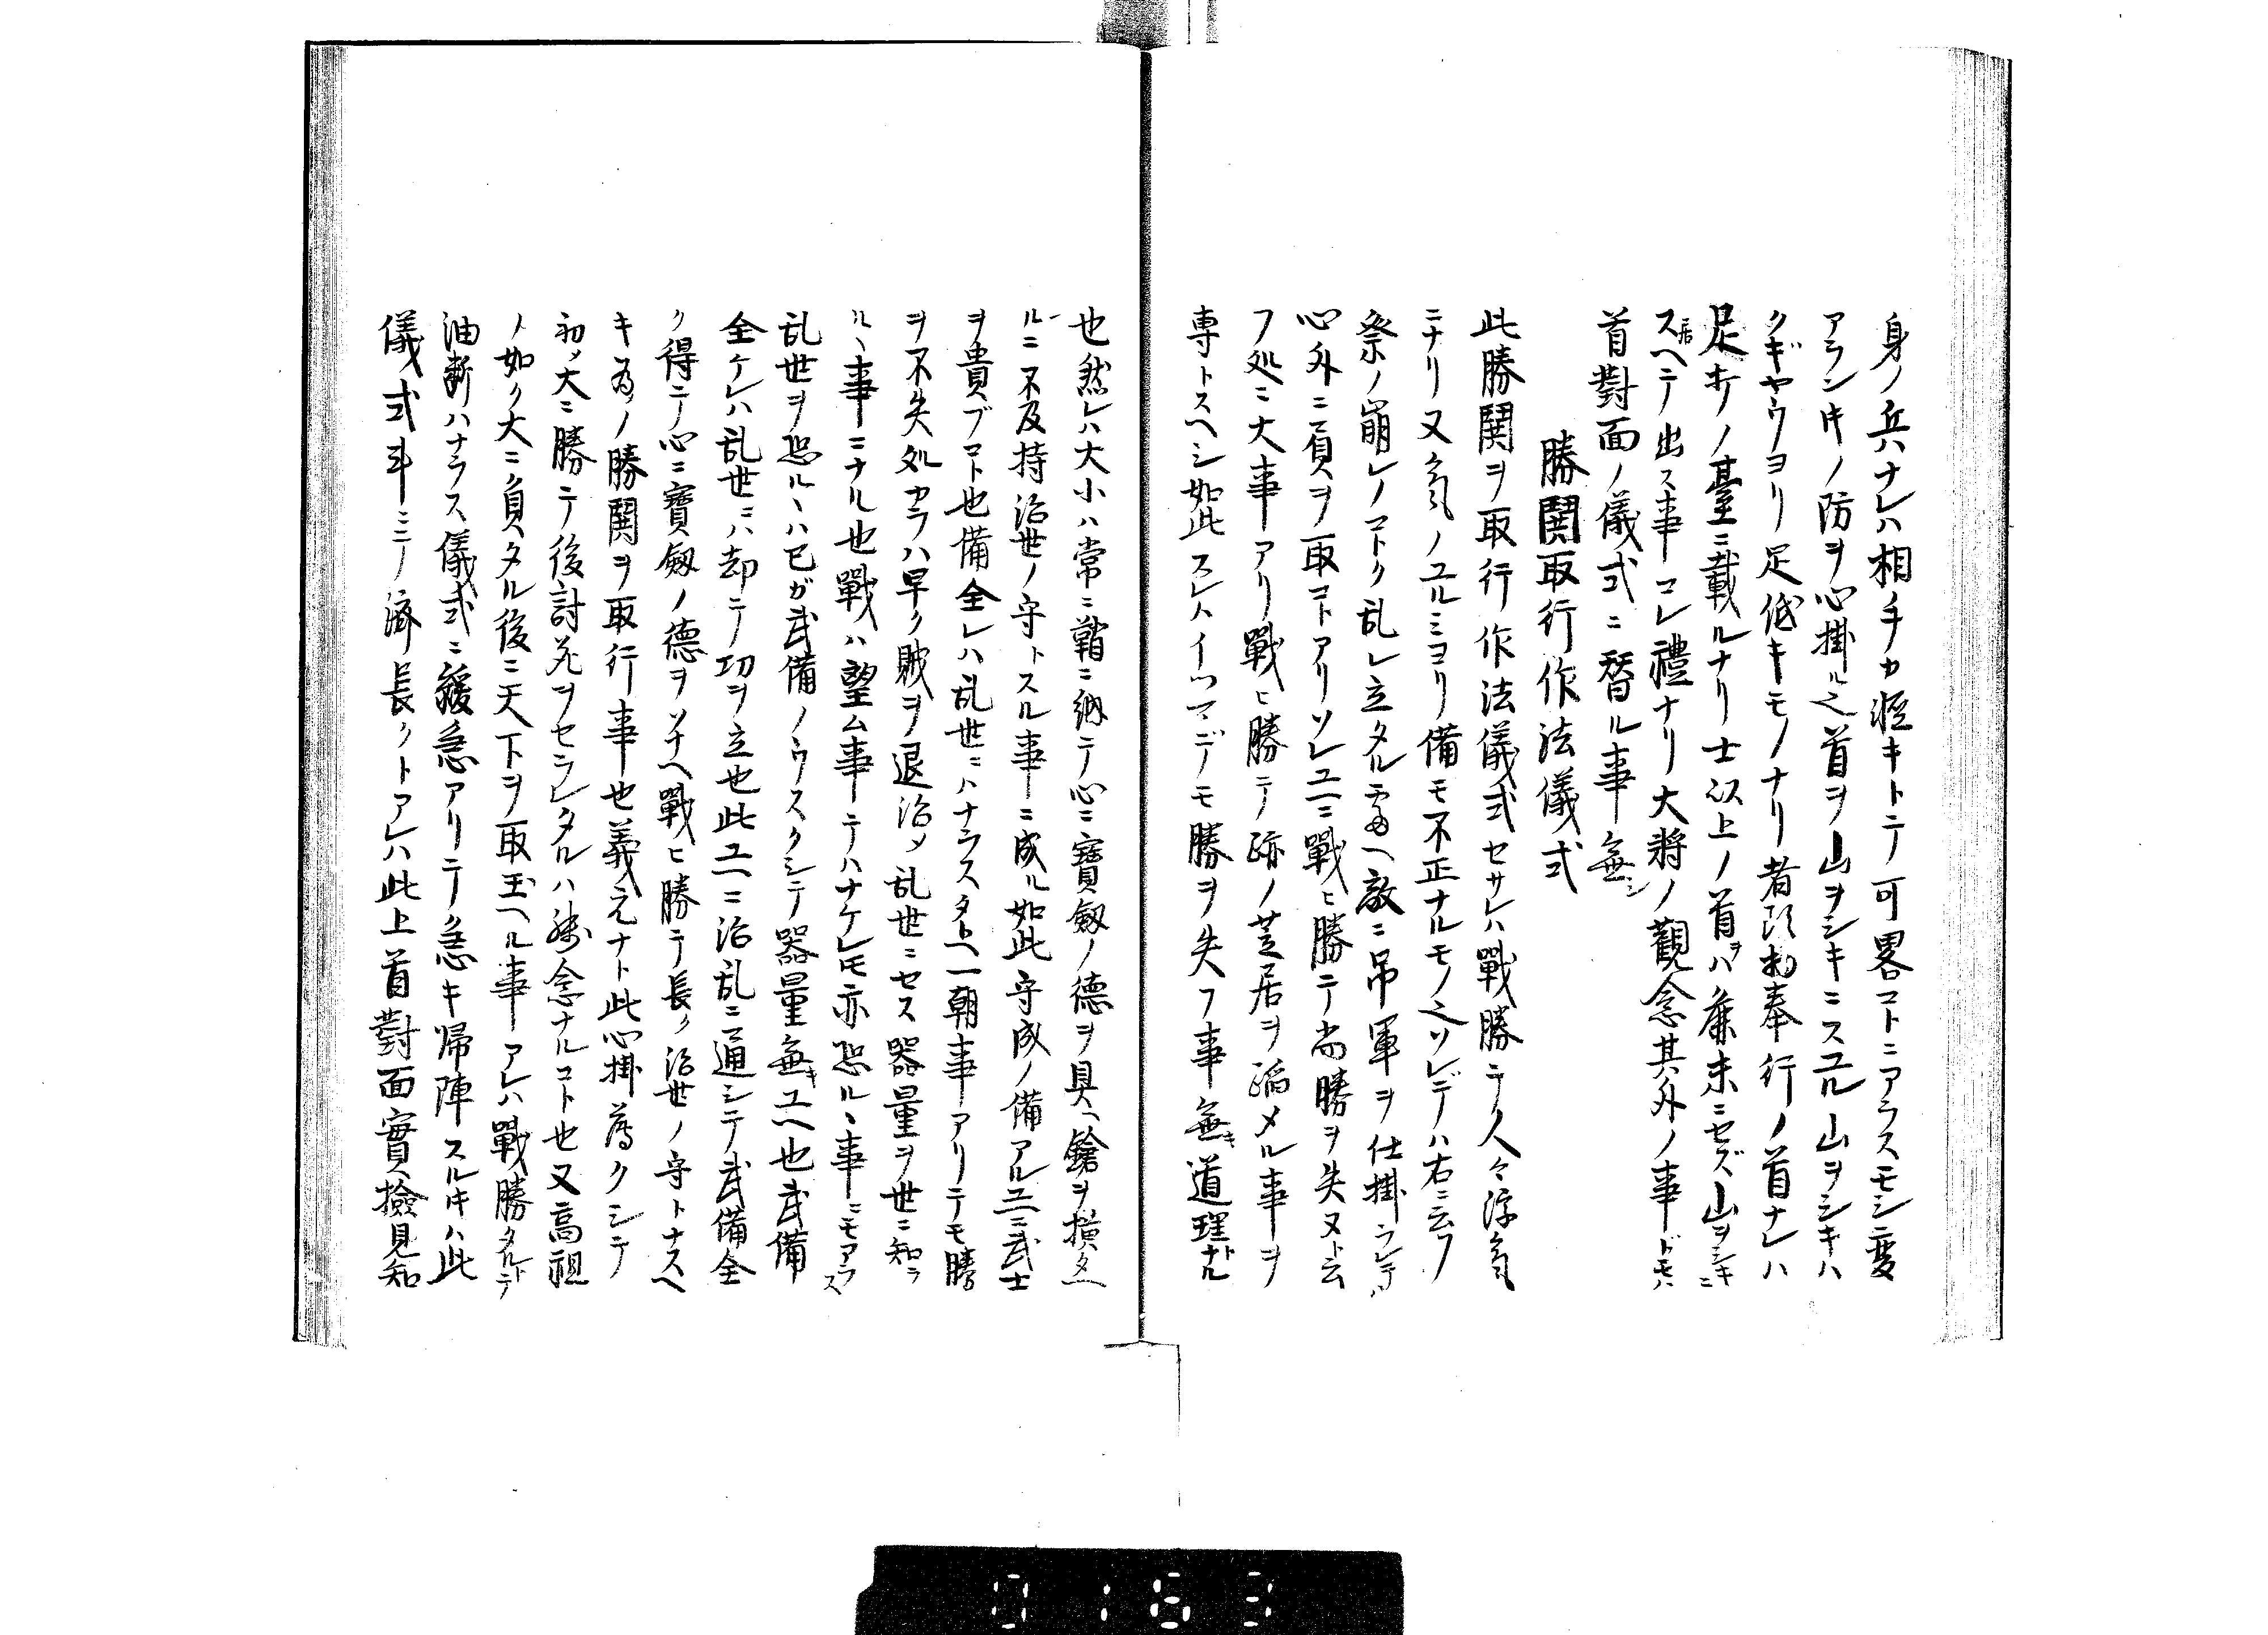 身ノ兵ハナレハ相手カ姪キトテ可畧コトニアラスモシ変
アランキノ防ヲ心掛ル也首ヲ山ヲシキニスユル山ヲシキハ
クギヤウヨリ足低キモノナリ者頭物奉行ノ首ナレハ
足打ノ臺ニ載ルナリ士以上ノ首ヲハ麁末ニセズ山ヲシキニ
スヘテ出ス事コレ禮ナリ大将ノ觀念其外ノ事ドモハ
首對面ノ儀式ニ替ル事無シ
勝鬨取行作法儀式
此勝鬨ヲ取行作法儀式セサレハ戰勝テ人々浮氣
ニナリ又氣ノユルミヨリ備モ不正ナルモノ也ソレデハ右ニ云フ
祭ノ崩レノコトク乱レ立タル處ヘ敵ニ吊軍ヲ仕掛ラレテハ
心外ニ負ヲ取コトアリソレユヘニ戰ヒ勝テ尚勝ヲ失ヌト云
フ処ニ大事アリ戰ヒ勝テ跡ノ芝居ヲ蹈メル事ヲ
専トスヘシ如此スレハイツマデモ勝ヲ失フ事無キ道理ナル
也然レハ大小ハ常ニ鞘ニ納テ心ニ寳劔ノ德ヲ具ヘ鎗ヲ横タヘ
ルニ不及持治世ノ守トスル事ニ成ル如此守成ノ備アルユヘニ武士
ヲ貴ブコト也備全レハ乱世ニハナラスタトヘ一朝事アリテモ勝
ヲ不失処カラハ早ク賊ヲ退治メ乱世ニセス器量ヲ世ニ知ラ
ルヽ事ニナル也戰ハ望ム事テハナケレ𪜈亦恐ルヽ事ニモアラス
乱世ヲ恐ルヽハ已ガ武備ノウスクシテ器量無キユヘ也武備
全ケレハ乱世ニハ却テ功ヲ立也此ユヘニ治乱ニ通シテ武備全
ク得テ心ニ寳劔ノ德ヲソナヘ戰ヒ勝テ長ク治世ノ守トナスヘ
キ為ノ勝鬨ヲ取行事也義元ナト此心掛薄クシテ
初メ大ニ勝テ後討死ヲセラレタルハ殘念ナルコト也又高祖
ノ如ク大ニ負タル後ニ天下ヲ取玉ヘル事アレハ戰勝タルトテ
油断ハナラス儀式ニ緩急アリテ急キ帰陣スルキハ此
儀式斗ニテ済長クトアレハ此上首對面實撿見知